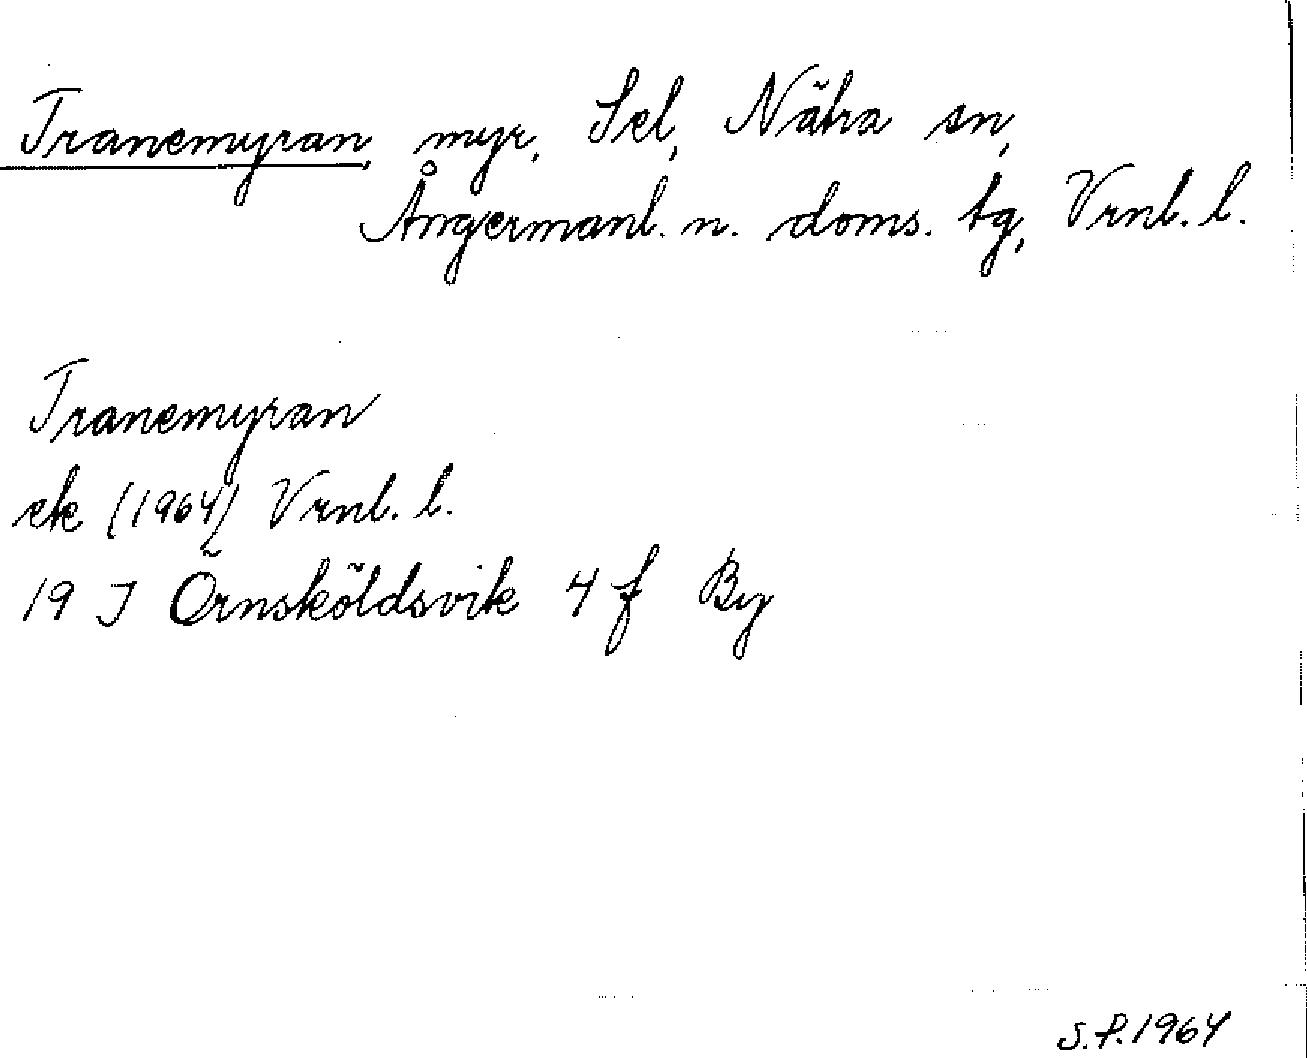 Tranemyran myr, Sel, Nätra sn,
Ångermanl. n. doms. tg, Vrnl. l.
Tranemyran
ek (1964) Vrnl. l.
19 J Örnsköldsvik 4 f By
S.P. 1964